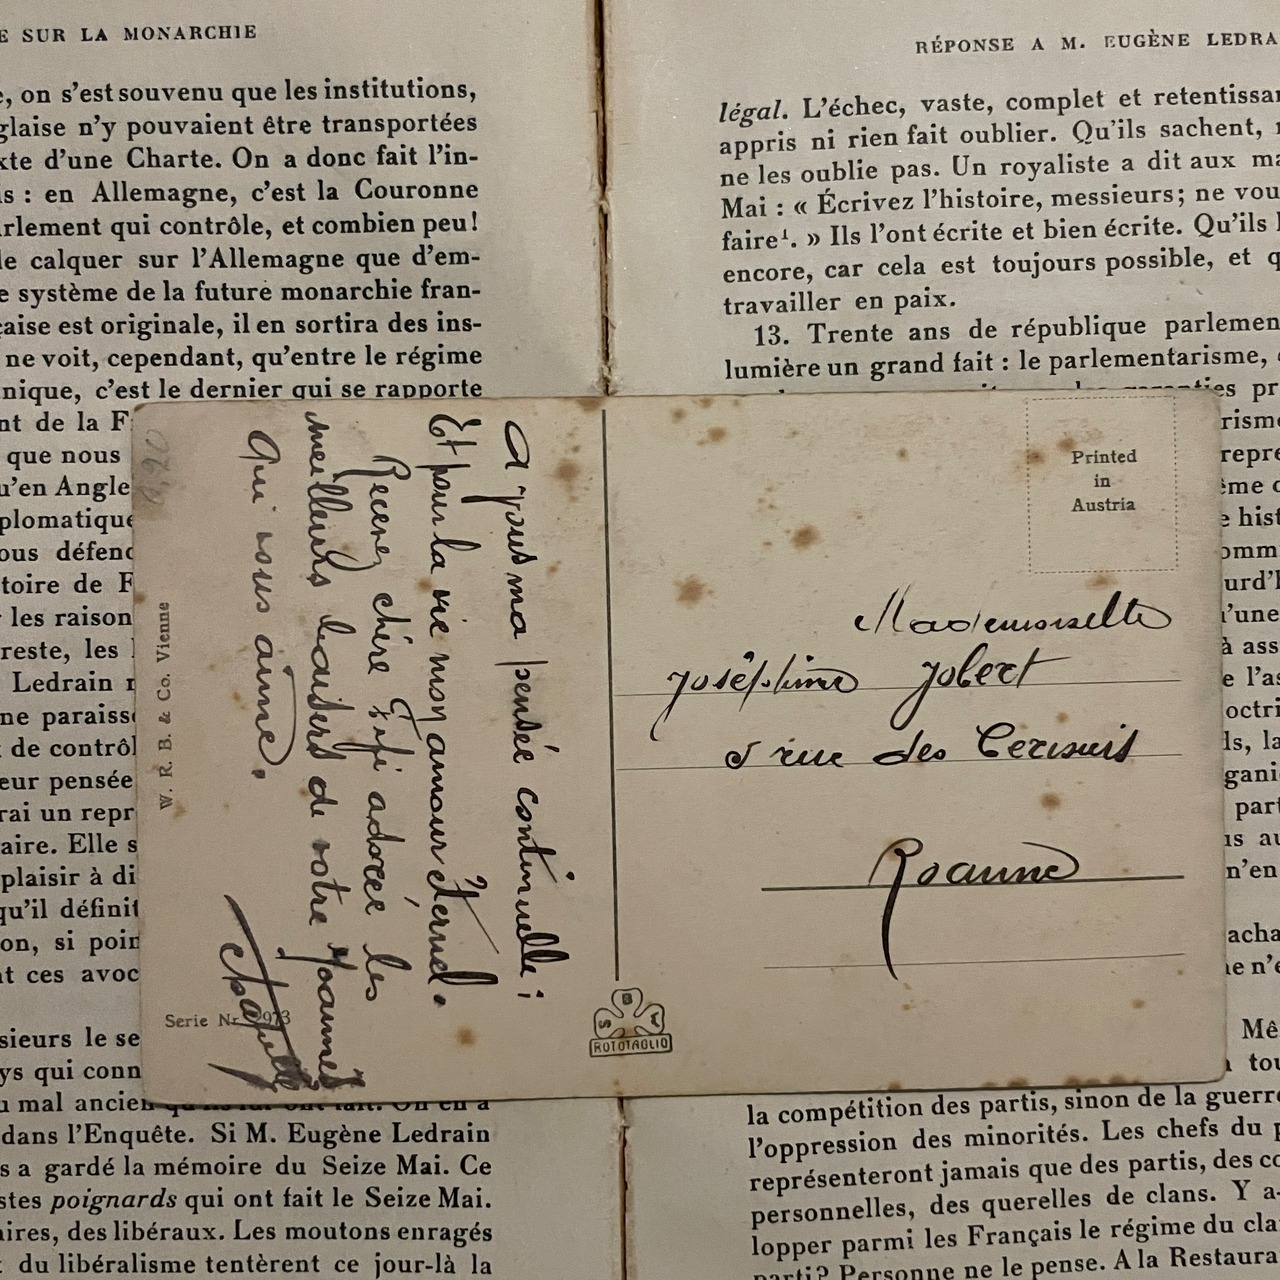 E SUR LA MONARCHIE
e, on s'est souvenu que les institutions,
glaise n'y pouvaient être transportées
xte d'une Charte. On a donc fait l'in-
is : en Allemagne, c'est la Couronne
arlement qui contrôle, et combien peu!
le calquer sur l'Allemagne que d'em-
e système de la future monarchie fran-
çaise est originale, il en sortira des ins-
ne voit, cependant, qu'entre le régime
nique, c'est le dernier qui se rapporte
nt de la F
que nous
u'en Angle
plomatique
ous défenc
toire de F
r les raison
reste, les
Ledrain
ne paraiss
t de contrôl
eur pensée
rai un repr
aire. Elle s
plaisir à di
qu'il définit
on, si poin
nt ces avoc
sieurs le se
ys qui conn
u mal ancien qu'ils lui ont fait. On en a
dans l'Enquête. Si M. Eugène Ledrain
s a gardé la mémoire du Seize Mai. Ce
stes poignards qui ont fait le Seize Mai.
aires, des libéraux. Les moutons enragés
du libéralisme tentèrent ce jour-là la
A vous ma pensée continuelle ;
Et pour la vie mon amour éternel.
Recevez chère Fifi adorée les
meilleurs baisers de votre Joannès
qui vous aime.
W. R. B. & Co. Vienne
Serie Nr. 2973
S B W
ROTOTAGLIO
Printed
in
Austria
Mademoiselle
Joséphine Jobert
5 rue des
Roanne
RÉPONSE A M. EUGÈNE LEDRA
légal. L'échec, vaste, complet et retentissan
appris ni rien fait oublier. Qu'ils sachent,
ne les oublie pas. Un royaliste a dit aux ma
Mai : « Écrivez l'histoire, messieurs; ne vou
faire¹. » Ils l'ont écrite et bien écrite. Qu'ils
encore, car cela est toujours possible, et q
travailler en paix.
13. Trente ans de république parlemen
lumière un grand fait : le parlementarisme,
ties pr
risme
repre
ême d
e hist
omm
urd'h
'une
à ass
e l'as
octri
ls, la
gani
part
us au
n'en
acha
ne n'e
Mê
tou
la compétition des partis, sinon de la guerre
l'oppression des minorités. Les chefs du p
représenteront jamais que des partis, des co
personnelles, des querelles de clans. Y a-
lopper parmi les Français le régime du cla
parti? Personne ne le pense. A la Restaura